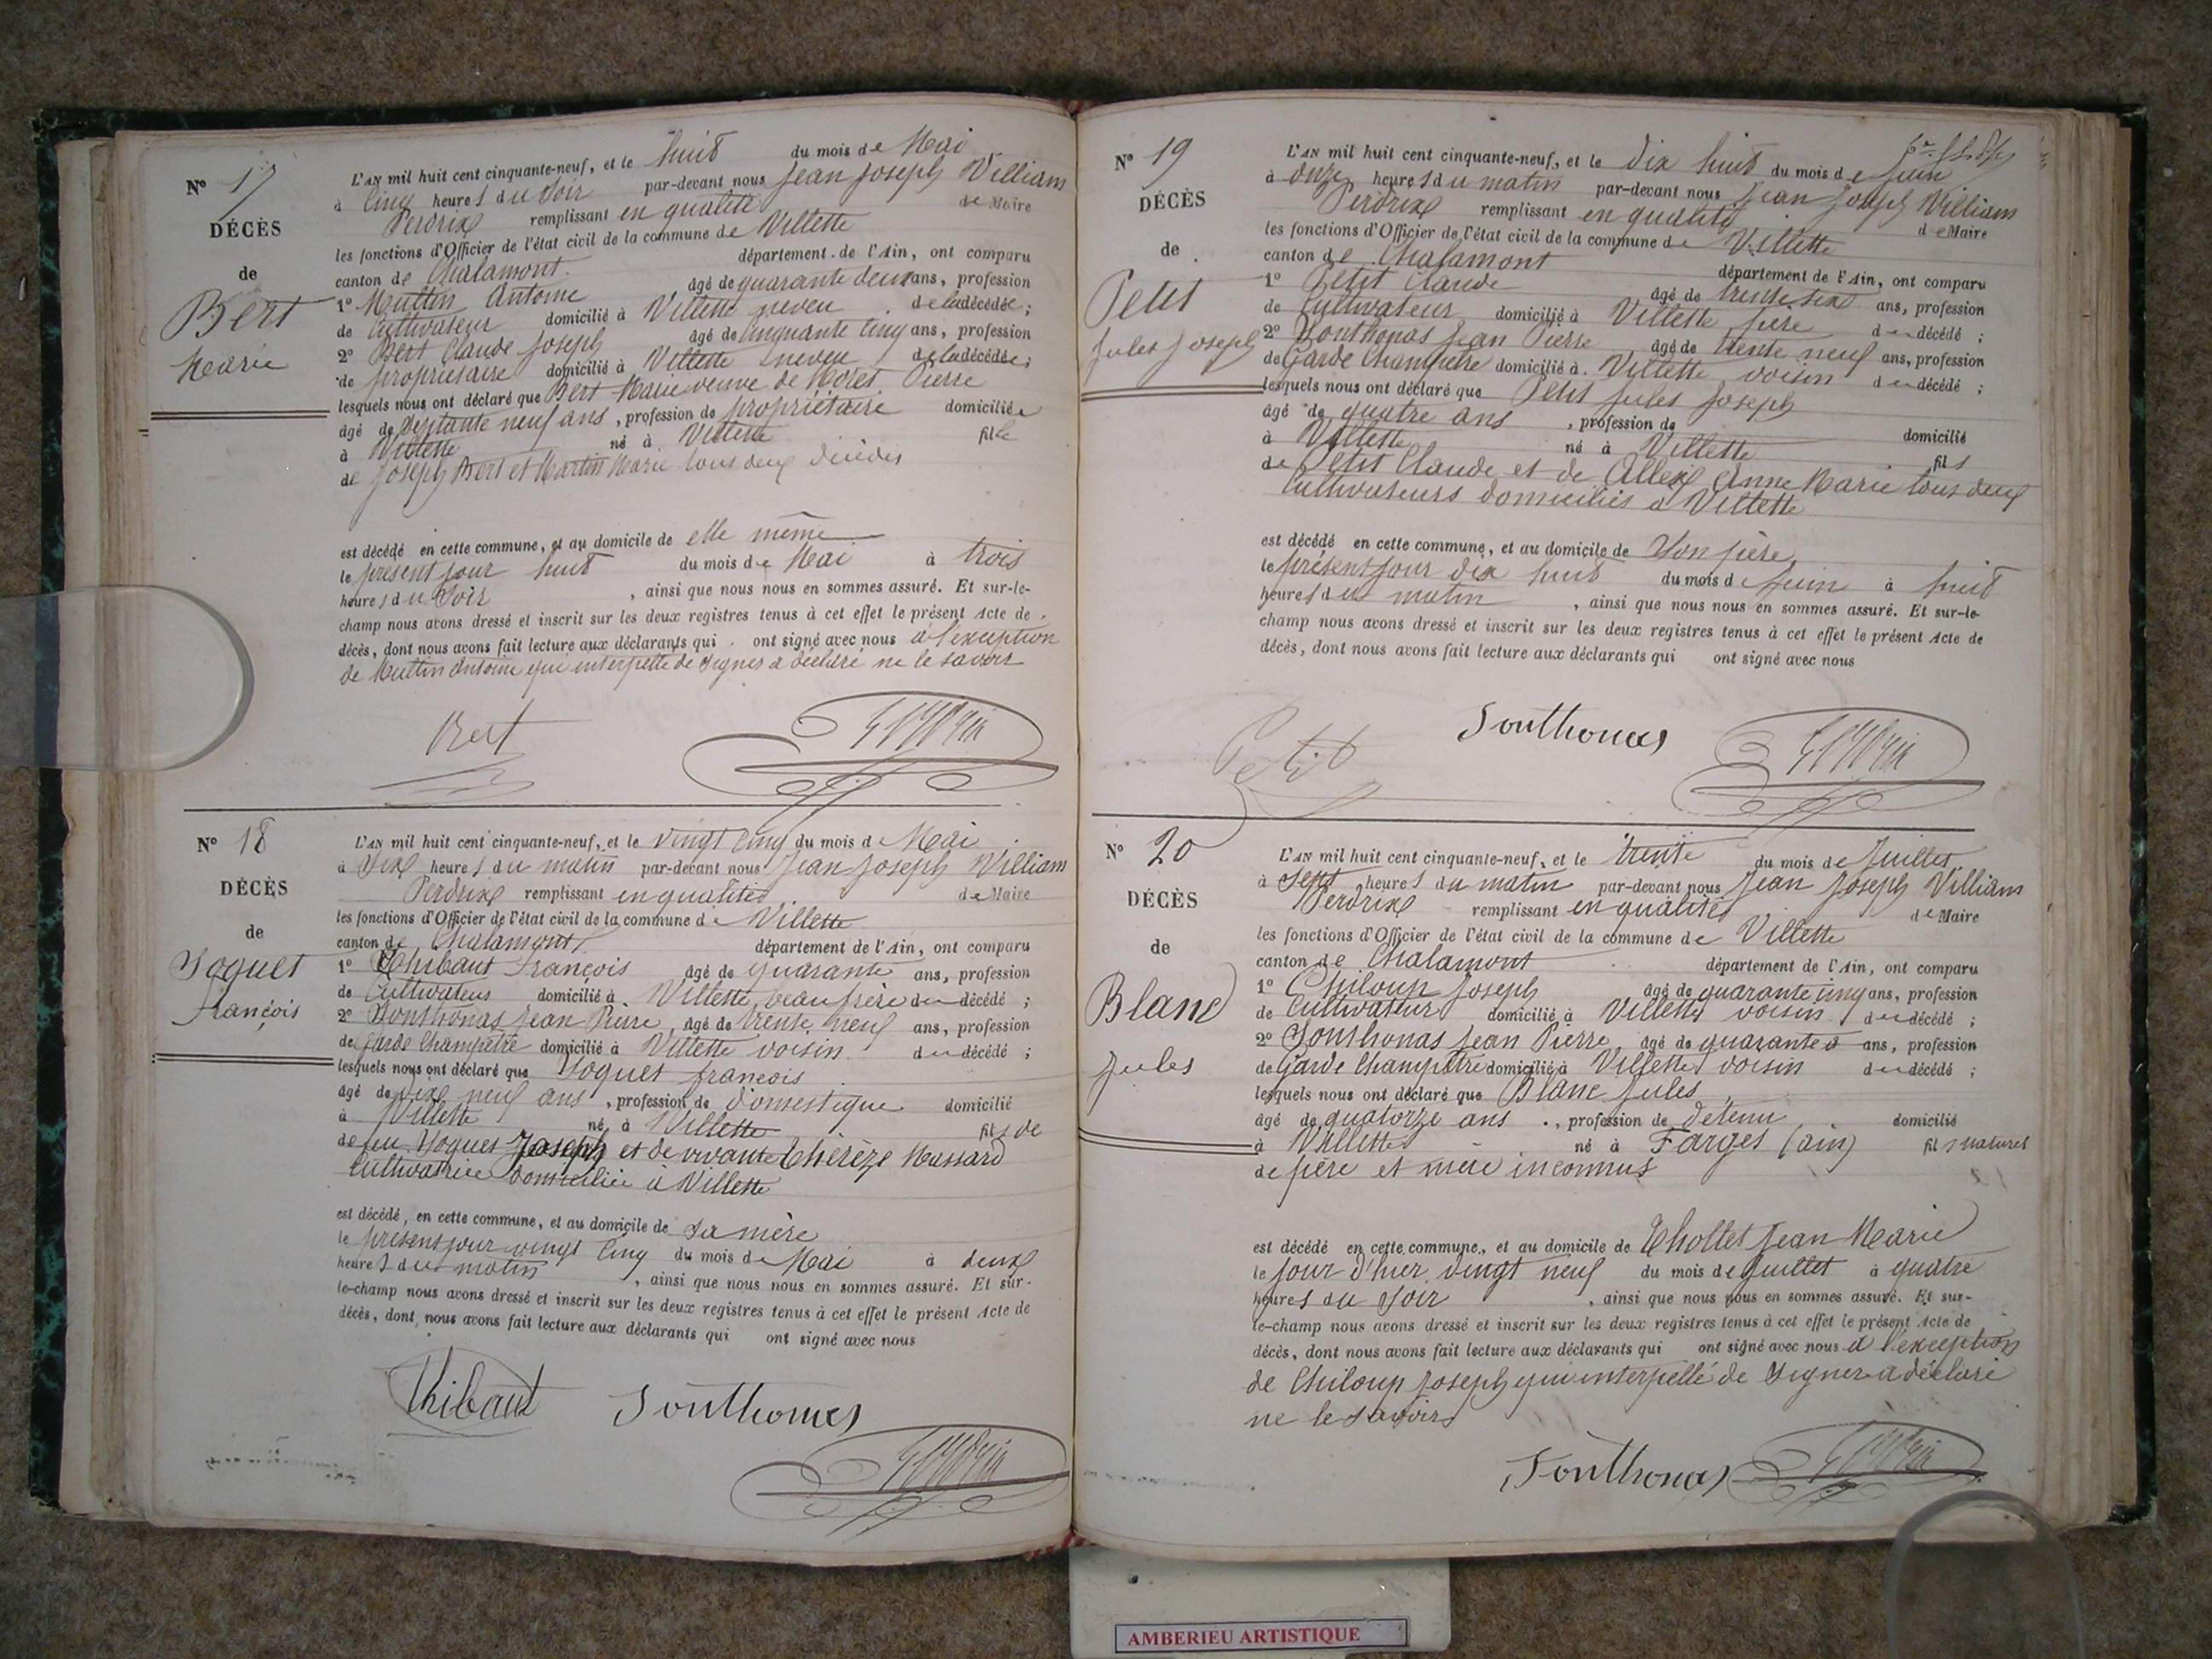 N° 17
DÉCÈS
de
Bert
Marie
L'AN mil huit cent cinquante-neuf, et le huit du mois de Mai
à Cinq heures du Soir par-devant nous Jean Joseph William
Perdrix remplissant en qualité de Maire
les fonctions d'Officier de l'état civil de la commune de Villette
canton de Chalamont département de l'Ain, ont comparu
1° Muttin Antoine âgé de quarante deux ans, profession
de Cultivateur domicilié à Villette neveu de la décédée ;
2° Bert Claude Joseph âgé de Cinquante Cinq ans, profession
de propriétaire domicilié à Villette neveu de la décédée ;
lesquels nous ont déclaré que Bert Marie veuve de Moret Pierre
âgé de Septante neuf ans, profession de propriétaire domiciliée
à Villette né à Villette fille
de Joseph Bert et Martin Marie tous deux décédés
est décédé en cette commune, et au domicile de elle même
le présent jour huit du mois de Mai à trois
heures du Soir, ainsi que nous nous en sommes assuré. Et sur-le-
champ nous avons dressé et inscrit sur les deux registres tenus à cet effet le présent Acte de
décès, dont nous avons fait lecture aux déclarants qui ont signé avec nous à l'exception
de Muttin Antoine qui interpellé de Signer a déclaré ne le savoir
Bert
N° 18
DÉCÈS
de
Joguet
François
L'AN mil huit cent cinquante-neuf, et le vingt Cinq du mois de Mai
à Dix heures du matin par-devant nous Jean Joseph William
Perdrix remplissant en qualité de Maire
les fonctions d'Officier de l'état civil de la commune de Villette
canton de Chalamont département de l'Ain, ont comparu
1° Thibaut François âgé de quarante ans, profession
de Cultivateur domicilié à Villette, beau frère du décédé ;
2° Jonthonas Jean Pierre, âgé de trente neuf ans, profession
de Garde Champêtre domicilié à Villette voisin du décédé ;
lesquels nous ont déclaré que Joguet François
âgé de Dix neuf ans, profession de Domestique domicilié
à Villette né à Villette fils de
de feu Joguet Joseph et de vivante Thérèze Massard
Cultivatrice domiciliée à Villette
est décédé, en cette commune, et au domicile de Sa mère
le présent jour vingt Cinq du mois de Mai à deux
heures du matin, ainsi que nous nous en sommes assuré. Et sur-
le-champ nous avons dressé et inscrit sur les deux registres tenus à cet effet le présent Acte de
décès, dont nous avons fait lecture aux déclarants qui ont signé avec nous
Thibaut Jonthonas
N° 19
DÉCÈS
de
Petit
Jules Joseph
L'AN mil huit cent cinquante-neuf, et le Dix huit du mois de Juin
à Onze heures du matin par-devant nous Jean Joseph William
Perdrix remplissant en qualité de Maire
les fonctions d'Officier de l'état civil de la commune de Villette
canton de Chalamont département de l'Ain, ont comparu
1° Petit Claude âgé de trente six ans, profession
de Cultivateur domicilié à Villette père du décédé ;
2° Jonthonas Jean Pierre âgé de trente neuf ans, profession
de Garde Champêtre domicilié à Villette voisin du décédé ;
lesquels nous ont déclaré que Petit Jules Joseph
âgé de quatre ans, profession de domicilié
à Villette né à Villette fils
de Petit Claude et de Allex Anne Marie tous deux
Cultivateurs domiciliés à Villette
est décédé en cette commune, et au domicile de Son père
le présent jour dix huit du mois de Juin à huit
heures du matin, ainsi que nous nous en sommes assuré. Et sur-le-
champ nous avons dressé et inscrit sur les deux registres tenus à cet effet le présent Acte de
décès, dont nous avons fait lecture aux déclarants qui ont signé avec nous
Petit Jonthonas
N° 20
DÉCÈS
de
Blanc
Jules
L'AN mil huit cent cinquante-neuf, et le trente du mois de Juillet
à Sept heures du matin par-devant nous Jean Joseph William
Perdrix remplissant en qualité de Maire
les fonctions d'Officier de l'état civil de la commune de Villette
canton de Chalamont département de l'Ain, ont comparu
1° Chiloup Joseph âgé de quarante cinq ans, profession
de Cultivateur domicilié à Villette voisin du décédé ;
2° Jonthonas Jean Pierre, âgé de quarante ans, profession
de Garde Champêtre domicilié à Villette voisin du décédé ;
lesquels nous ont déclaré que Blanc Jules
âgé de quatorze ans, profession de détenu domicilié
à Villette né à Farges (ain) fils naturel
de père et mère inconnus
est décédé en cette commune, et au domicile de Thollet Jean Marie
le jour d'hier vingt neuf du mois de Juillet à quatre
heures du Soir, ainsi que nous nous en sommes assuré. Et sur-
le-champ nous avons dressé et inscrit sur les deux registres tenus à cet effet le présent Acte de
décès, dont nous avons fait lecture aux déclarants qui ont signé avec nous à l'exception
de Chiloup Joseph qui interpellé de Signer a déclaré
ne le savoir
Jonthonas
AMBERIEU ARTISTIQUE